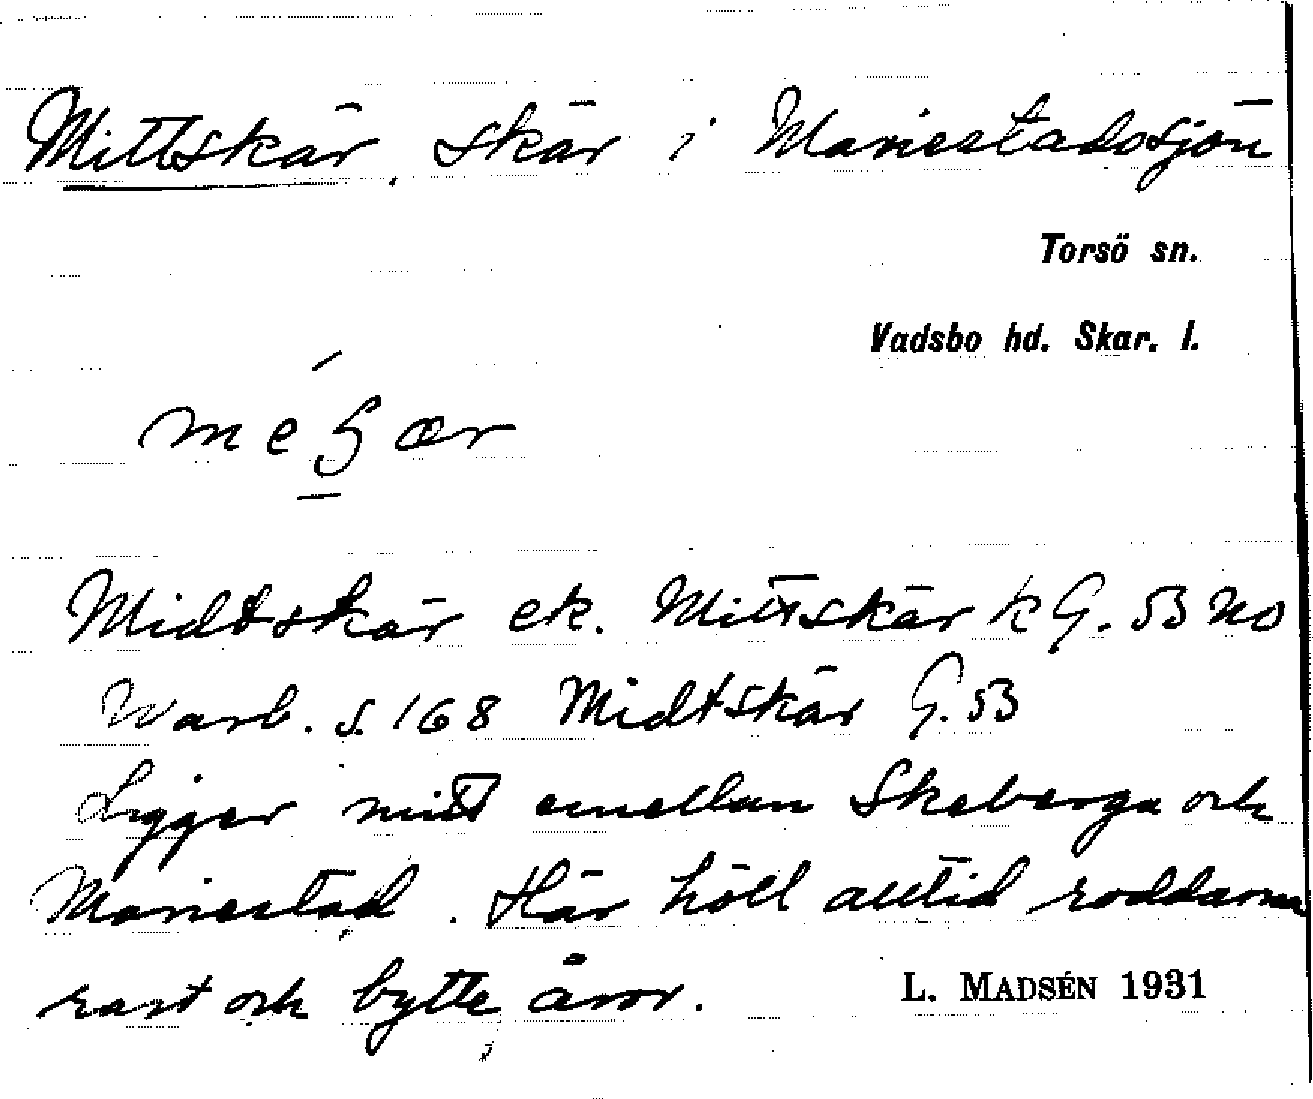 Mittskär, skär i Mariestadssjön
Torsö sn.
Vadsbo hd. Skar. l.
Midtskär ek. Mittskär k G. 53 no
Warb. s. 168 Midtskär G. 53
Ligger mitt emellan Skeberga och
Mariestad. Här höll alltid roddarna
rast och bytte åror.
L. MADSÉN 1931